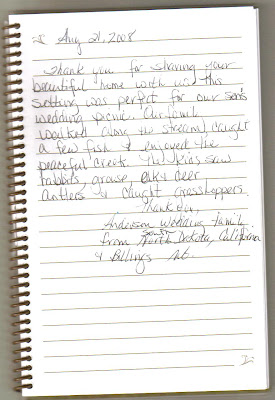 Aug 21, 2008
Thank you for sharing your
beautiful home with us this
setting was perfect for our son's
wedding picnic. Our family
walked along the stream, caught
a few fish & enjoyed the
peaceful creek. The kids saw
rabbits, grouse, elk & deer
antlers & caught grasshoppers
Thank You,
Anderson Wedding Family
from South Dakota, California
& Billings Mt.